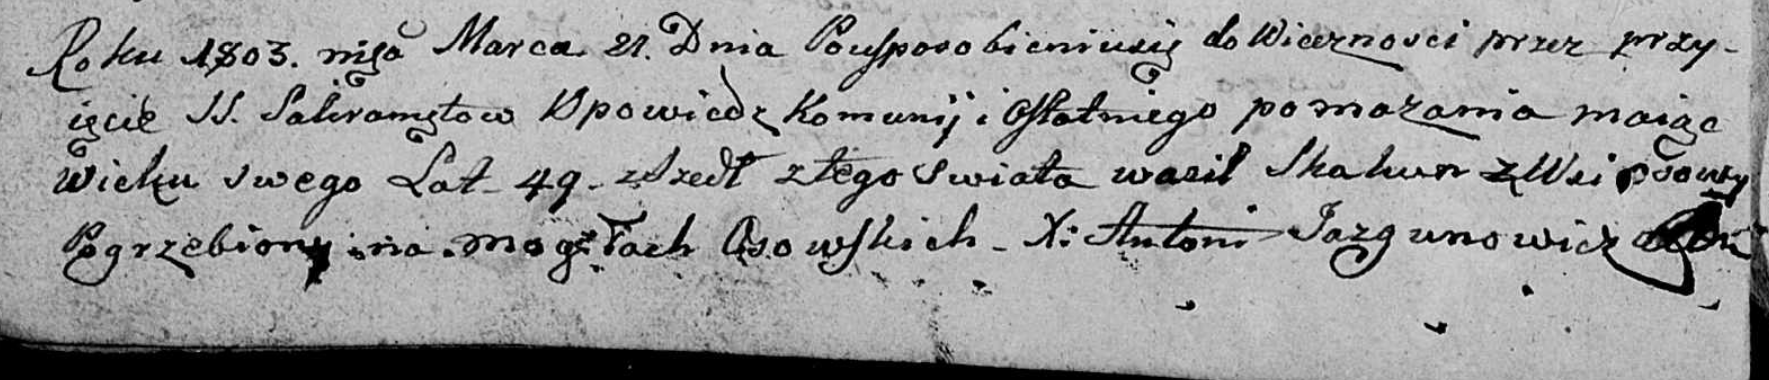 Roku 1803. msa Marca 21. Dnia Pousposobieniusię do Wiecznosci przez przy-
ięcie SS. Sakramętow Spowiedz Komunij i Ostatniego pomazania maiąc
Wieku swego Lat 49. zszedł ztego Swiata wasil Skakun z Wsi Osowy
Pogrzebiony na mogiłach Osowskich - X: Antoni Jazgunowicz